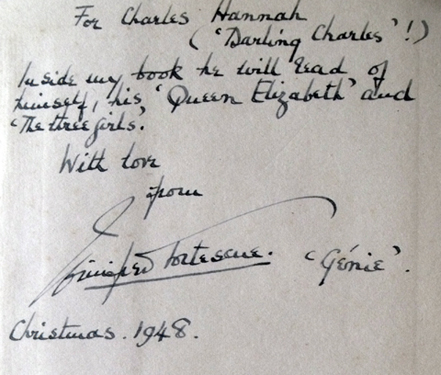 For Charles Hannah
("Darling Charles"!)
Inside my book he will read of
himself, his, "Queen Elizabeth" and
"The three girls".
With love
from
Winifred Fortescue. "Génie".
Christmas. 1948.